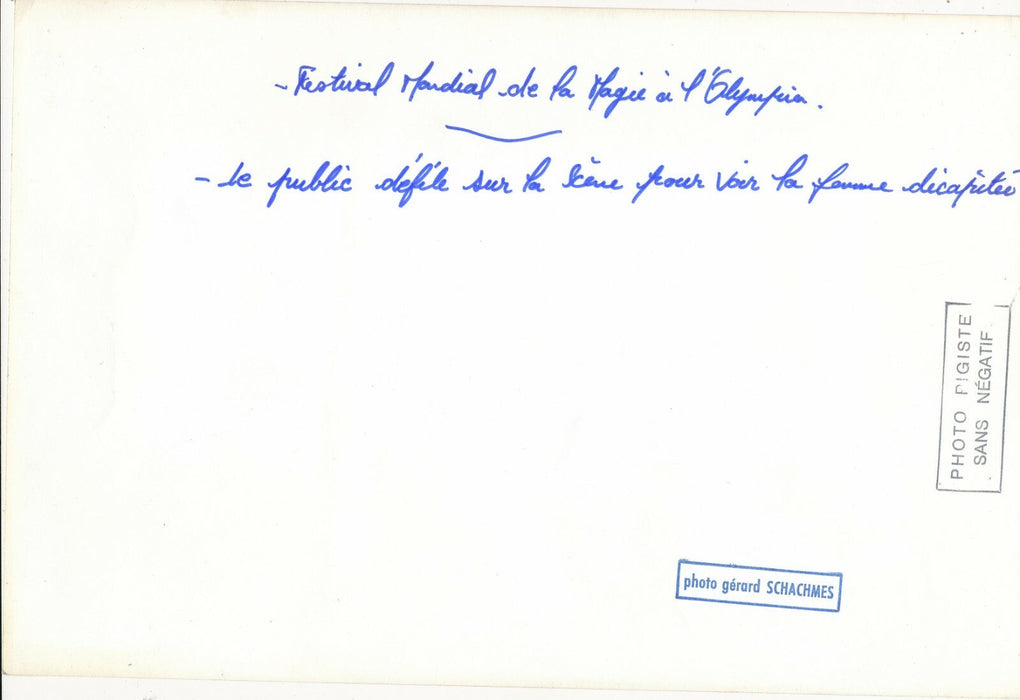 - Festival Mondial de la Magie à l'Olympia.
- Le public défile sur la scène pour voir la femme décapitée
PHOTO PIGISTE
SANS NÉGATIF
photo gérard SCHACHMES